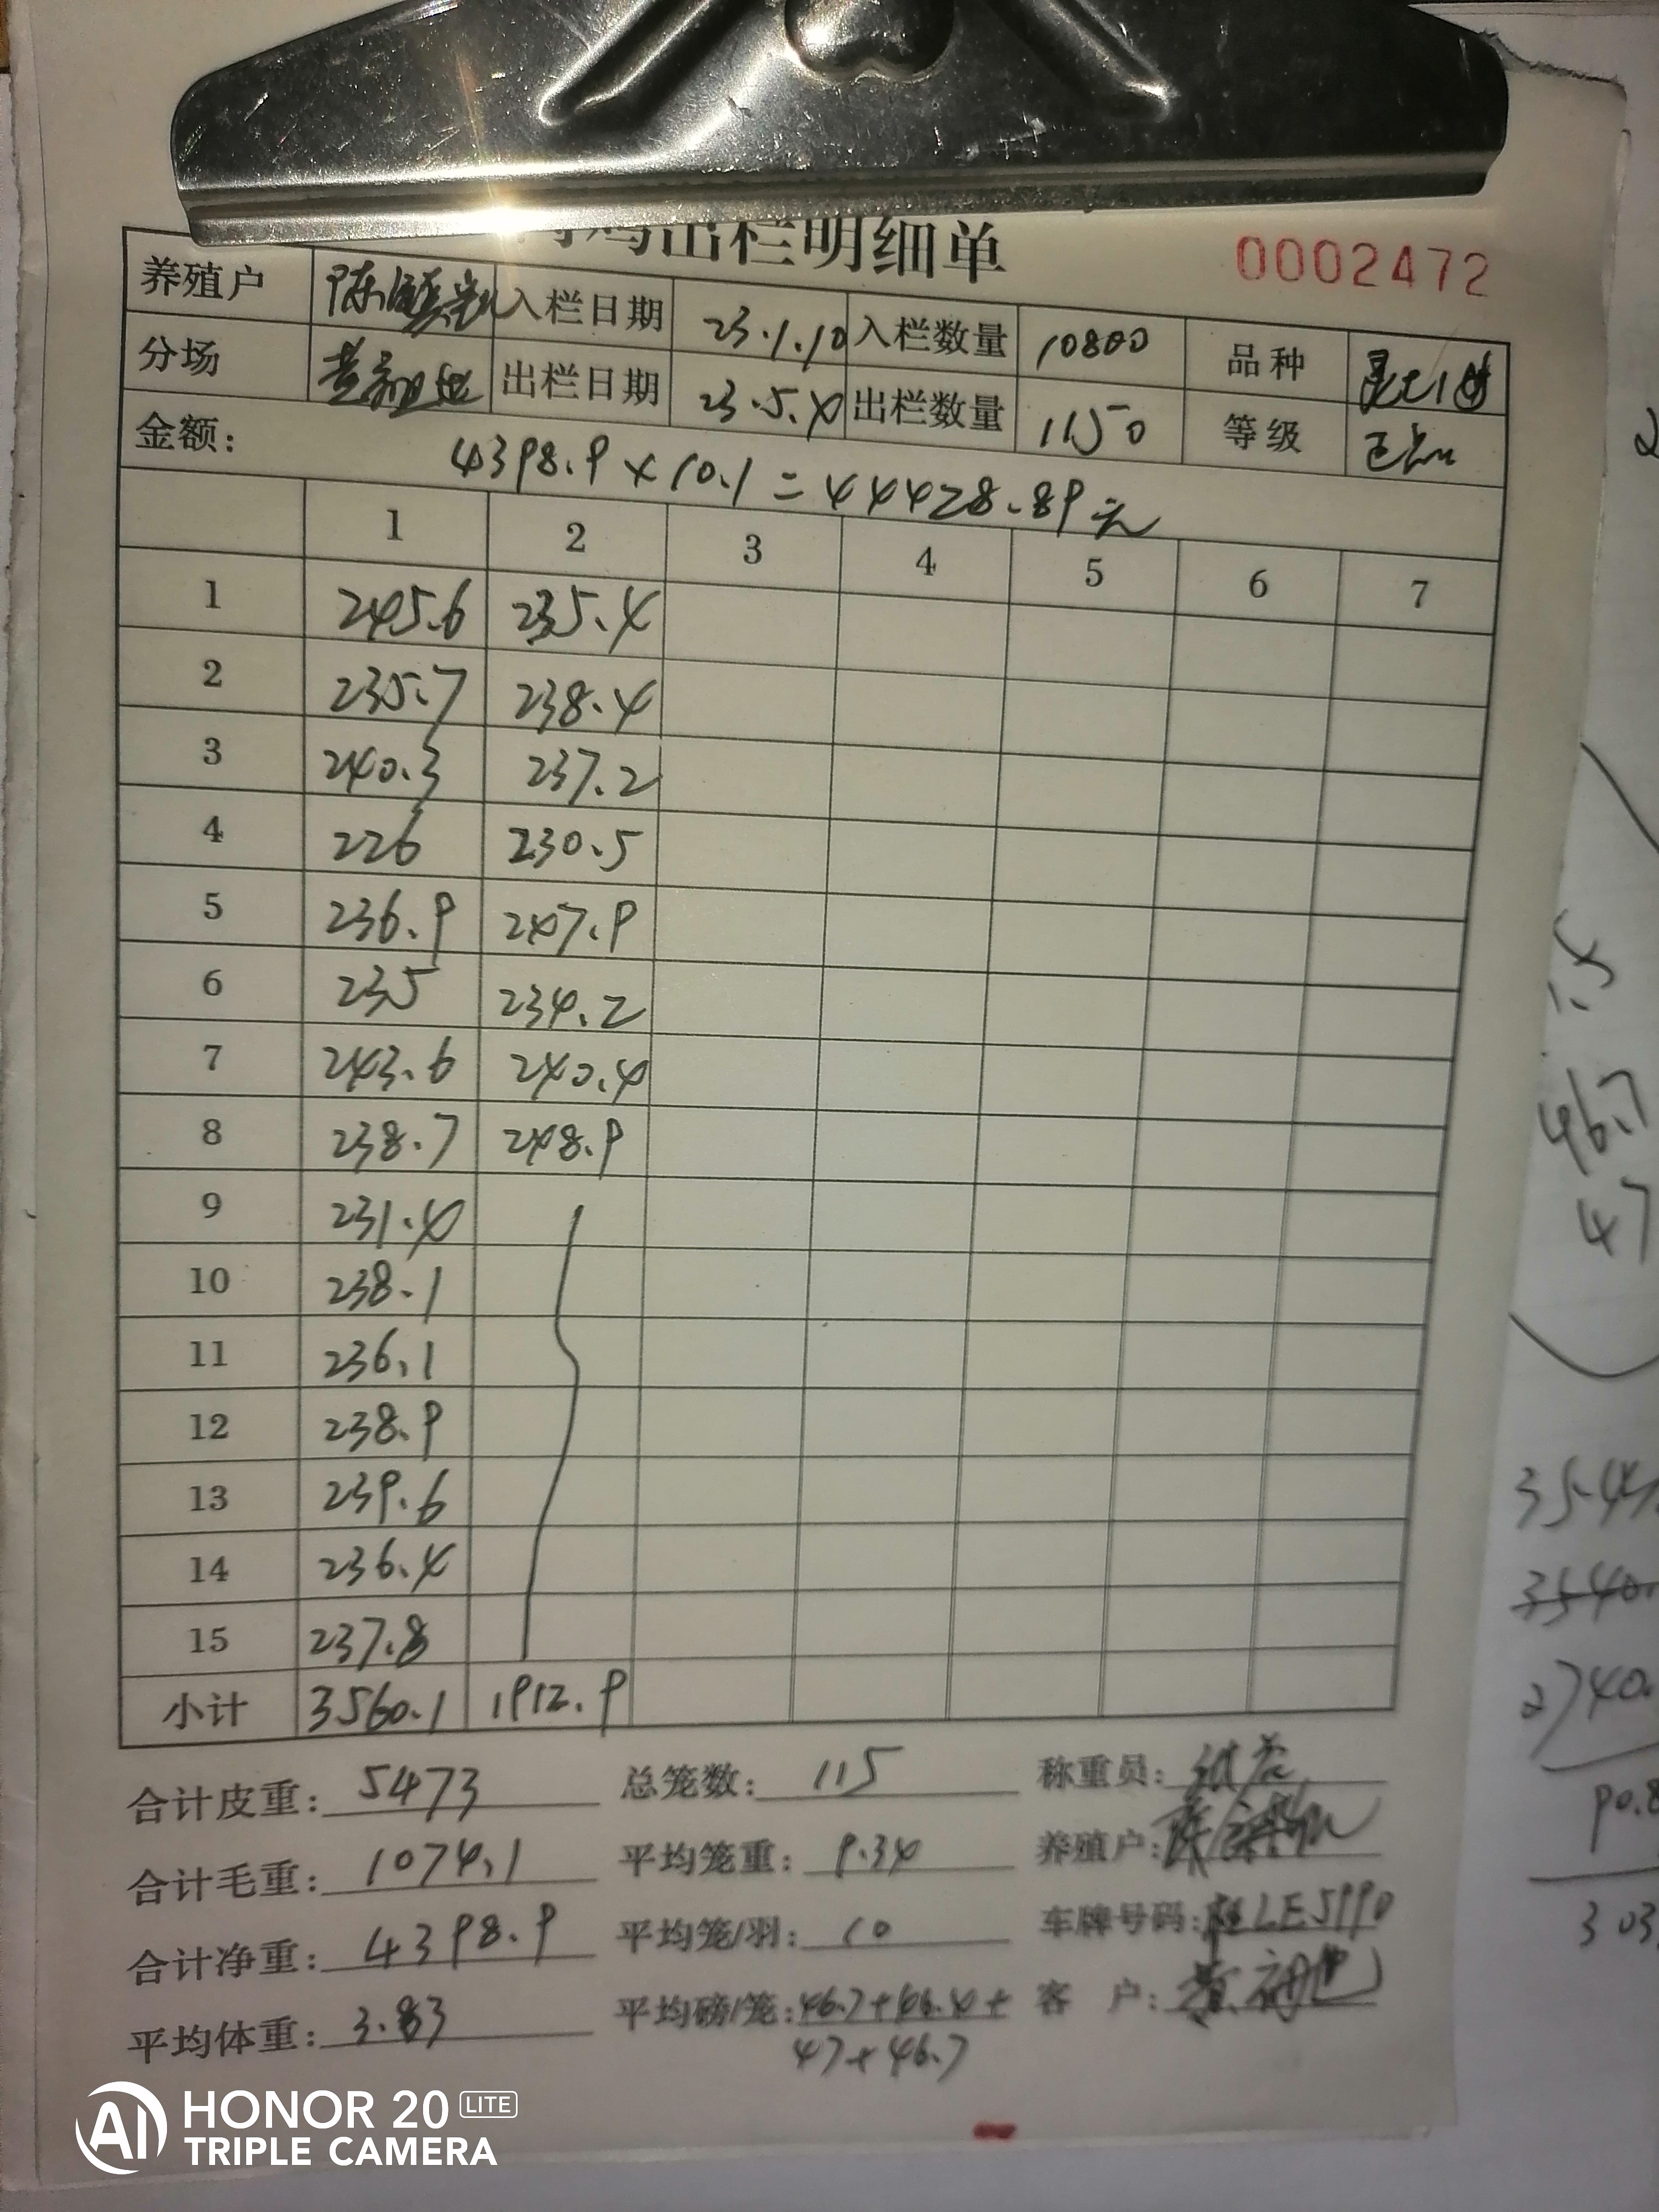 鸡出栏明细单 0002472
养殖户 入栏日期 23.1.10 入栏数量 10800 品种
分场 出栏日期 23.5.4 出栏数量 1150 等级 正品
金额: 4398.9×10.1=44428.89元
1 2 3 4 5 6 7
1 245.6 235.4
2 235.7 238.4
3 240.3 237.2
4 226 230.5
5 236.9 247.9
6 235 234.2
7 243.6 240.4
8 238.7 248.9
9 231.4
10 238.1
11 236.1
12 238.9
13 239.6
14 236.4
15 237.8
小计 3560.1 1912.9
合计皮重: 5473 总笼数: 115 称重员:
合计毛重: 1074.1 平均笼重: 9.34 养殖户:
合计净重: 4398.9 平均笼/羽: 10 车牌号码: 桂LE5990
平均体重: 3.83 平均磅/笼: 46.7+46.4+ 客 户:
47+46.7
46.7
47
HONOR 20 LITE
TRIPLE CAMERA
AI